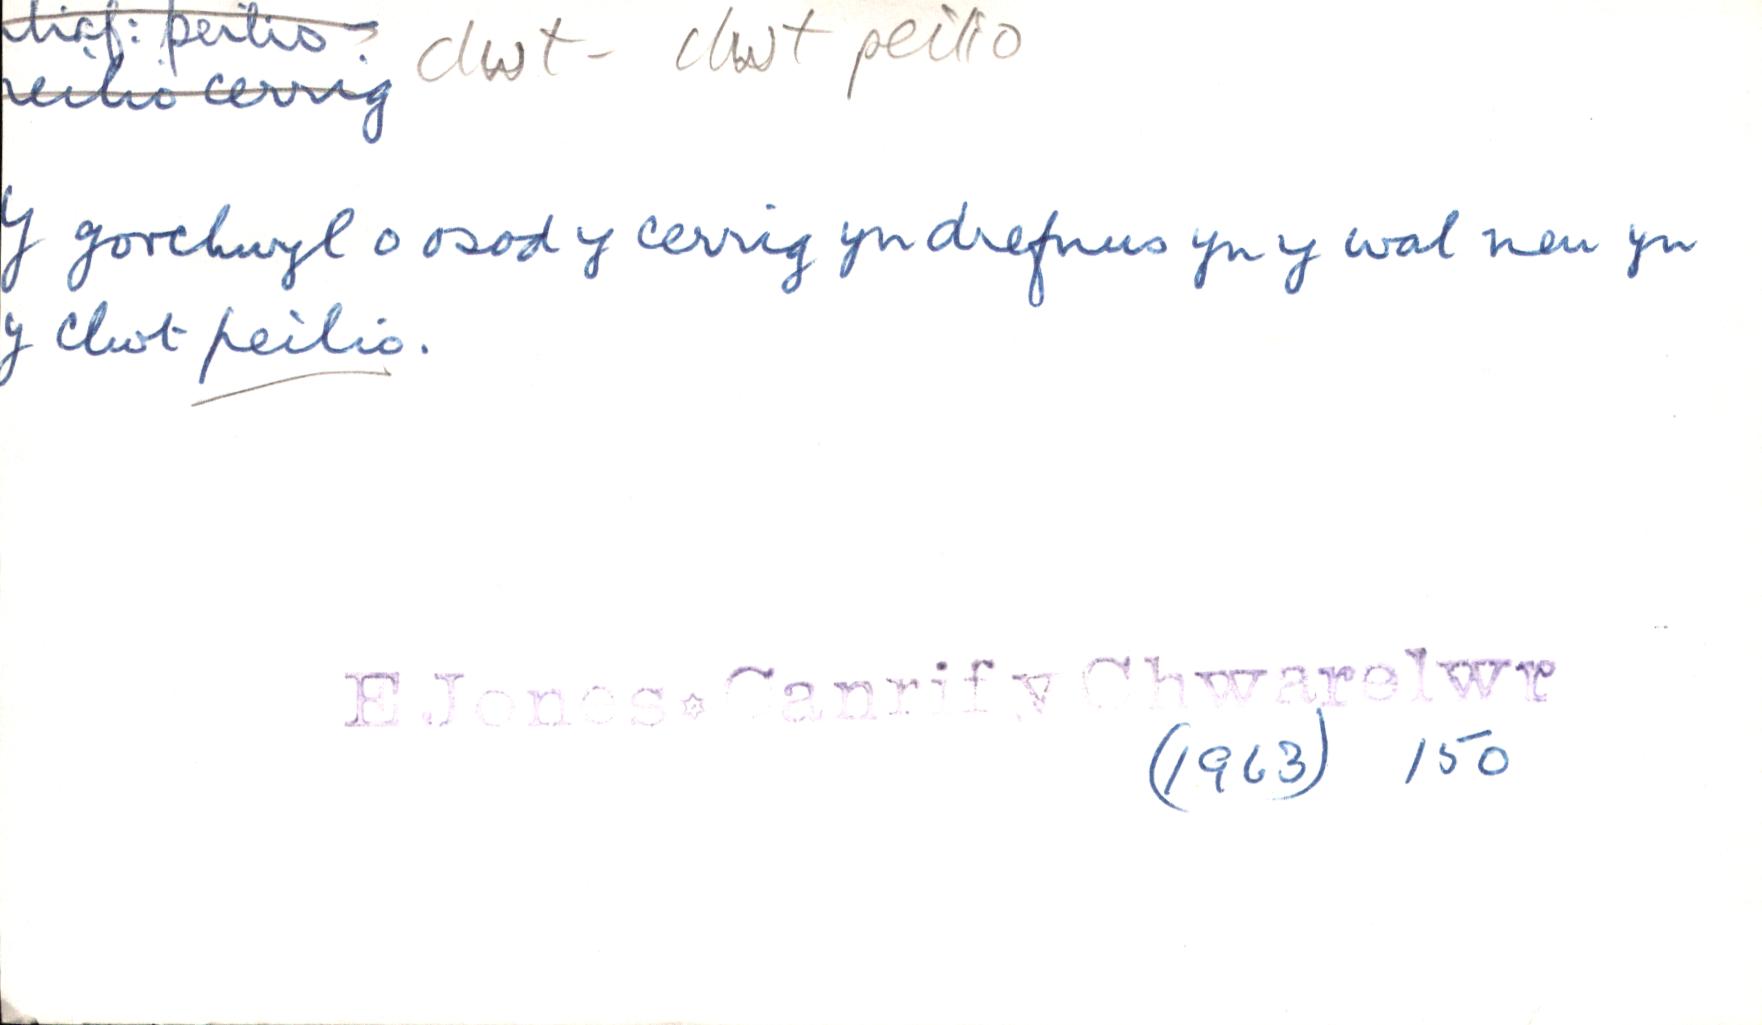 peilio
clwt - clwt peilio
cerrig
Y gorchwyl o osod y cerrig yn drefnus yn y wal neu yn
y clwt peilio.
E Jones. Canrif y Chwarelwr
(1963) 150